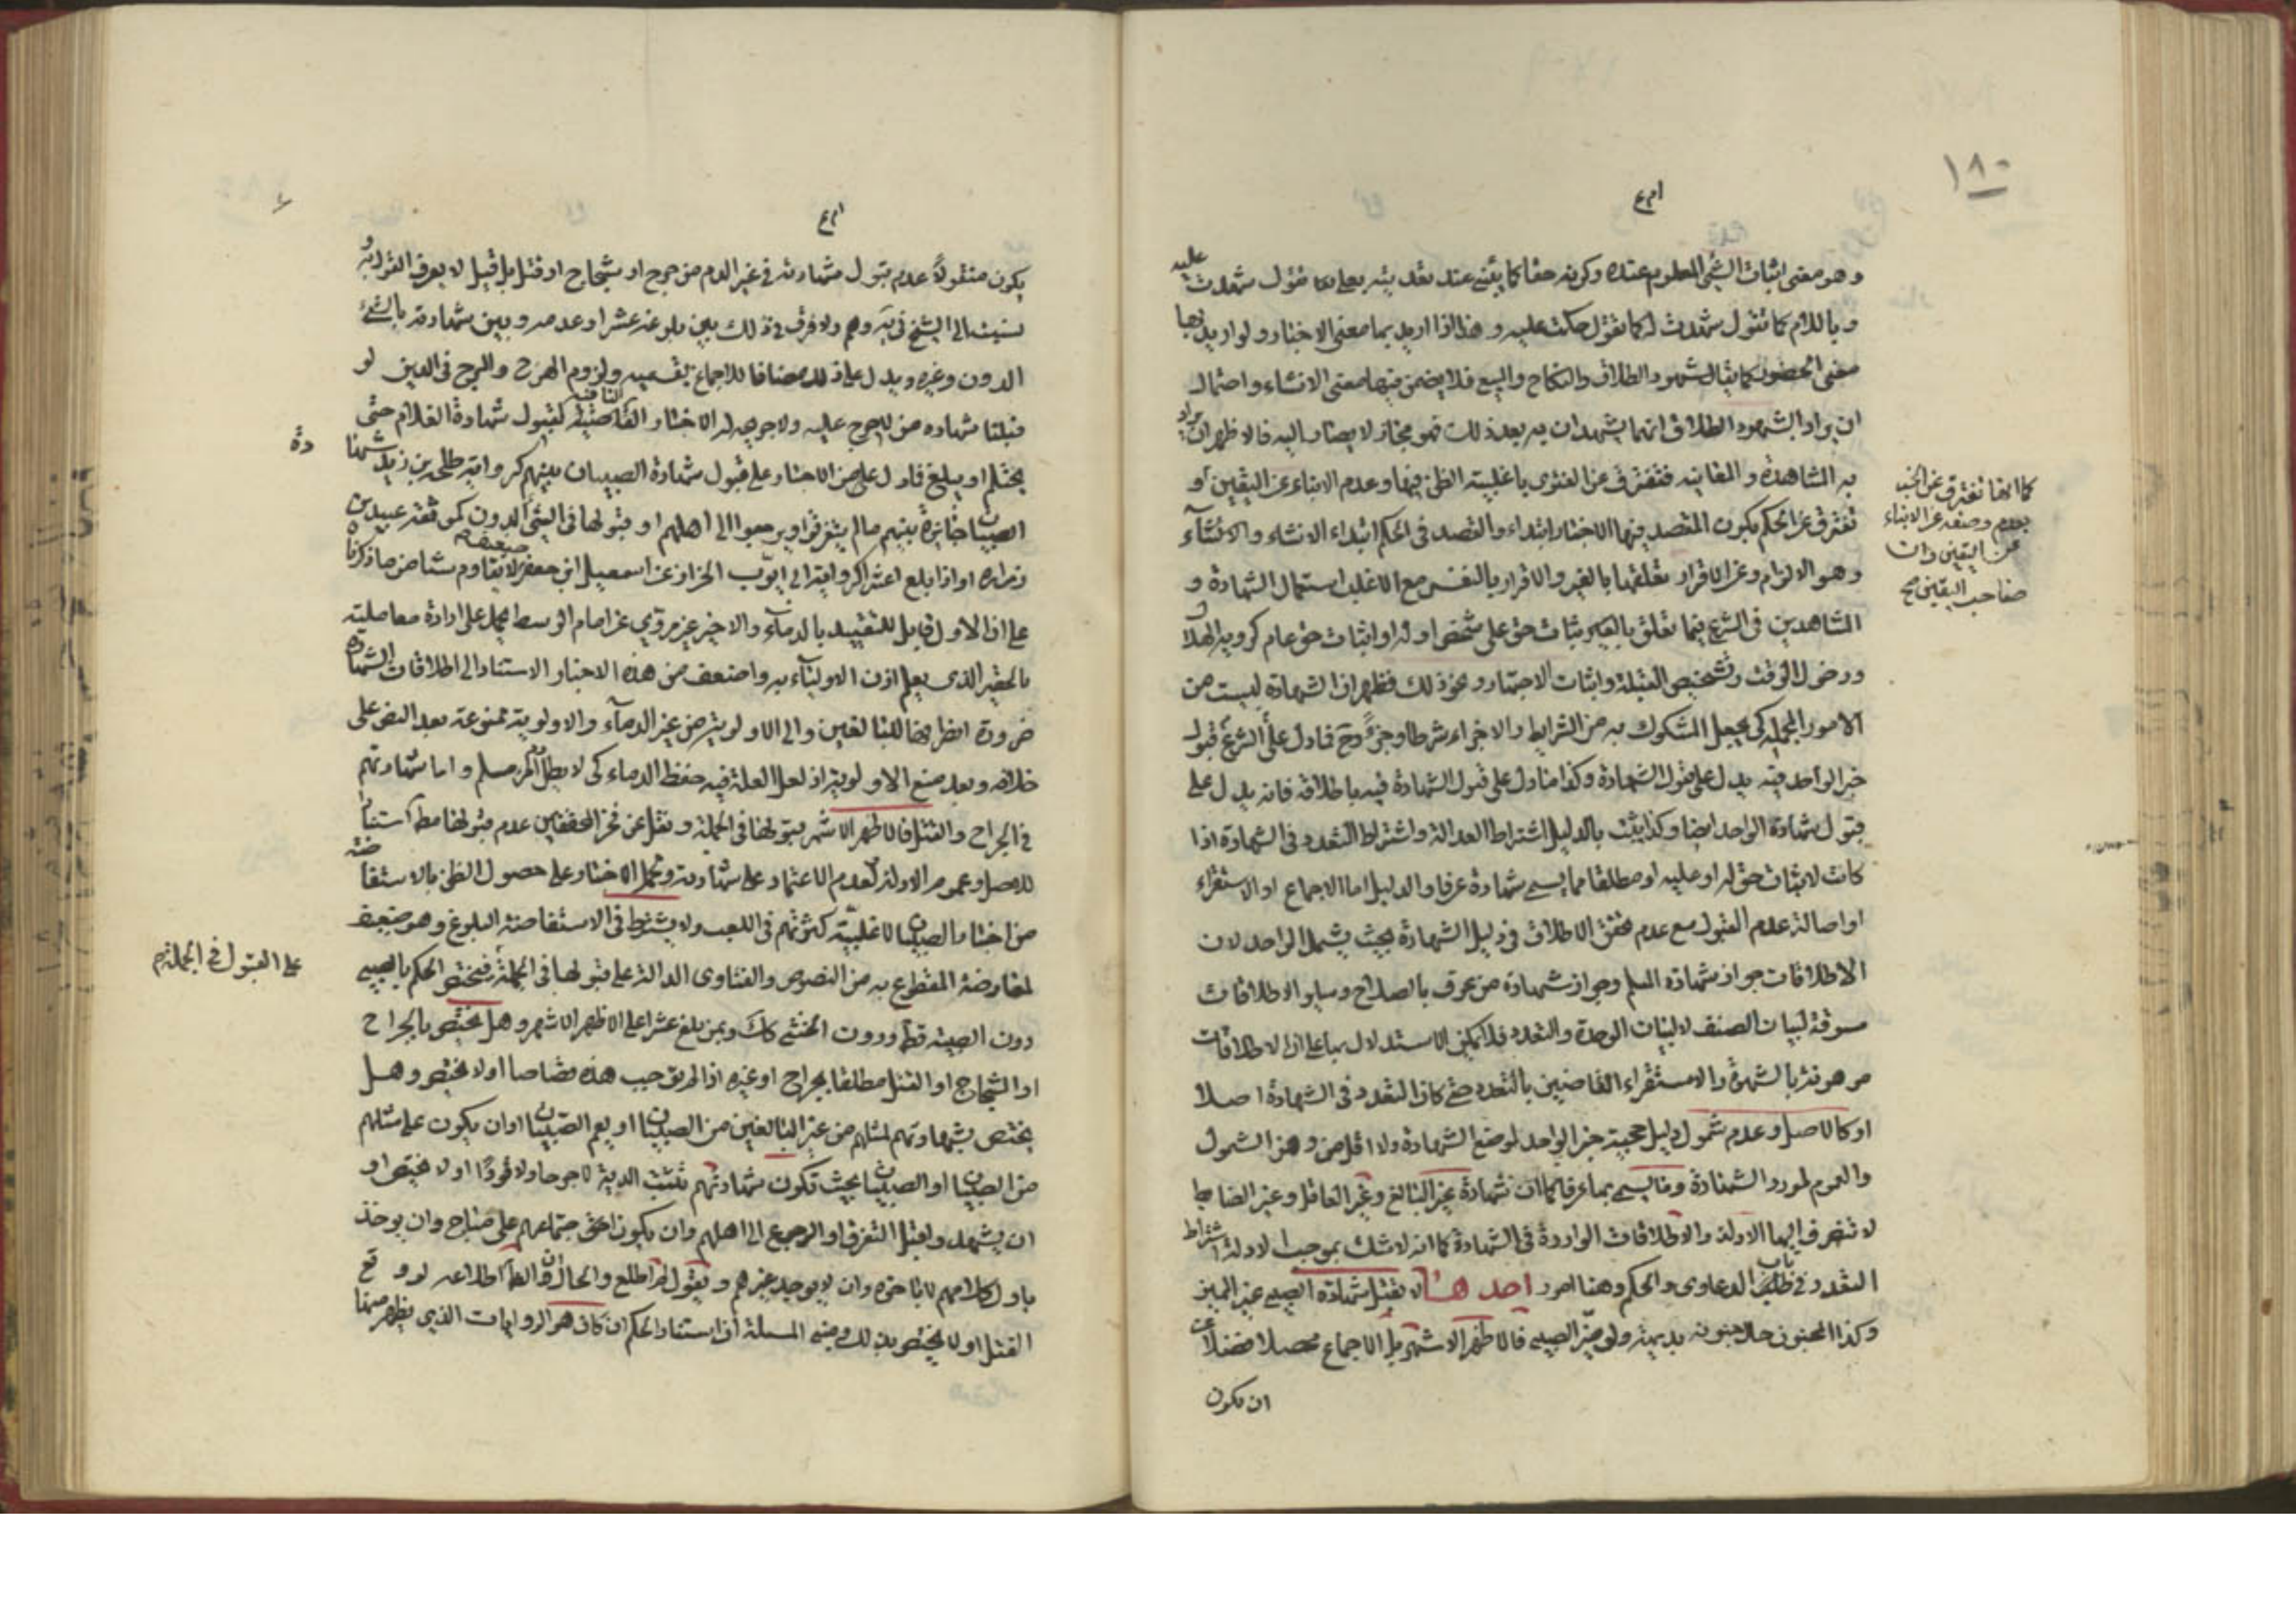 ١٨٠
وهو معنى اثبات الشئ المعلوم عنده وكونه حقا كما ينبئ عنه تعديته بعلى كما تقول شهدت عليه
وباللام كما تقول شهدت له كما تقول حكمت عليه وهذا اذا اريد بها معنى الاخبار ولو اريد بها
معنى الحضور كما يقال شهود الطلاق والنكاح والبيع فلا يضمن فيها معنى الانشاء واحتمال
ان يراد بشهود الطلاق انهم يشهدان به بعد ذلك فهو مجاز لا يصار اليه فالاظهر ان يراد
به المشاهدة والمعاينه فتفترق عن الفتوى باغلبية الظن فيها وعدم الانباء عن اليقين او
تفترق عن الحكم بكون المقصد فيها الاخبار ابتداء والقصد في الحكم ابتداء الانشاء والانشاء
وهو الالزام وعن الاقرار بتعلقها بالغير والاقرار بالنفس مع الاغلب استعمال الشهادة و
المشاهدين في الشرع فيما تعلق بالغير بثبات حق على شخص اوله او اثبات حق عام كرؤية الهلال
ودخول الوقت وتشخيص القبلة واثبات الاجتهاد ونحو ذلك فظهر ان الشهادة ليست من
الامور المجمله كي يجعل المشكوك به من الشرايط والاجزاء شرطا وجزءً وح فما دل على الشرع قبول
خبر الواحد فيه يدل على قبول الشهادة وكذا ما دل على قبول الشهادة فيه باطلاقه فانه يدل على
قبول شهادة الواحد ايضا وكذا يثبت بالدليل اشتراط العدالة واشتراط التعدد في الشهادة اذا
كانت لاثبات حق له او عليه او مطلقا مما يسمى شهادة عرفا والدليل اما الاجماع او الاستقراء
او اصالة عدم القبول مع عدم تحقق الاطلاق في دليل الشهادة بحيث يشمل الواحد لان
الاطلاقات جواز شهادة المسلم وجواز شهادة من عرف بالصلاح وساير الاطلاقات
مسوقة لبيان الصنف لا لبيان الوحدة والتعدد فلا يمكن الاستدلال بها على ان الاطلاقات
موهونة بالشهرة والاستقراء القاضيين بالتعدد حتى كان التعدد في الشهادة اصلا
او كالاصل وعدم شمول دليل حجية خبر الواحد لوضع الشهادة ولا اقل من وهن الشمول
والعموم لمورد الشهادة وما يسمى بها عرفا كما ان شهادة غير البالغ وغير العاقل وغير الضابط
لا تنصرف اليها الادلة والاطلاقات الواردة في الشهادة كما انه لا شك بموجب الادلة اشتراط
التعدد في باب الدعاوى والحكم وهنا امور احدها لا تقبل شهادة الصبي غير المميز
وكذا المجنون حال جنونه بديهة ولو ميّز الصبي فالاظهر الاشهر بل الاجماع محصلا فضلا عن
ان يكون
كما انها تفترق عن الخبر
بعدم وصفه عن الانباء
عن اليقين وان
صاحب اليقين صح
يكون منقولاً عدم قبول شهادته في غير الدم من جرح او شجاج او قتل بل قيل لا يعرف القول به
نسبت الى الشيخ في يه وهم ولا فرق في ذلك بين بلوغه عشرا وعدمه وبين شهادته بالشئ
الدون وغيره ويدل على ذلك مضافا للاجماع بقسميه ولزوم الهرج والمرج في الدين لو
قبلنا شهاده من لا حرج عليه ولا جرى له الاخبار النافية لقبول شهادة الغلام حتى
يحتلم او يبلغ فما دل على من الاخبار على قبول شهادة الصبيان بينهم كرواية طلحة بن زيد شهادة
الصبيان جايزة بينهم ما لم يتفرقوا ويرجعوا الى اهلهم او قبولها في الشئ الدون كموثقه عبيد بن
زراره او اذا بلغ عشرا كرواية ابي ايوب الخزاز عن اسمعيل ابن جعفر ضعيفه لا يقاوم شيئا من ما ذكرنا
على ان الاول قابل للتقييد بالدماء والاخير غير مروي عن امام الوسط يحمل على ارادة معاملية
بالحقير الذي يعلم اذن الاولياء به واضعف من هذه الاخبار الاستناد الى اطلاقات الشهادة
ضرورة انصرافها للبالغين والى الاولوية من غير الدماء والاولوية ممنوعة بعد النص على
خلافه وبعد منع الاولوية اذ لعل العلة فيه حفظ الدماء كي لا يطل دم امرء مسلم واما شهادتهم
في الجراح والقتل فالاظهر الاشهر قبولها في الجملة ونقل عن فخر المحققين عدم قبولها مط استنادا
للاصل وعموم الادلة لعدم الاعتماد على شهادته وتحمل الاخبار على حصول الظن بالاستفاضة
من اخبار الصبيان لاغلبية كثرتهم في اللعب ولا يشترط في الاستفاضة البلوغ وهو ضعيف
لمعارضة المقطوع به من النصوص والفتاوى الدالة على قبولها في الجملة فيختص الحكم بالصبي
دون الصبية قطعا ودون الخنثى كك وبمن بلغ عشرا على الاظهر الاشهر وهل يختص بالجراح
او الشجاج او القتل مطلقا بجراح او غيره اذا لم يوجب هذه قصاصا او لا يختص وهل
يختص بشهادتهم لمثلهم من غير البالغين من الصبيان او يعم الصبيان او ان يكون على مثلهم
من الصبيان او الصبيان بحيث تكون شهادتهم تثبت الدية لا جرحا ولا قودا او لا يختص او
ان يشهدوا قبل التفرق او الرجوع الى اهلهم وان يكون اجتماعهم على مباح وان يوخذ
باول كلامهم لا باخره وان لا يوجد غيرهم وبقول من اطلع والحال اطلاعه لو وقع
القتل او لا يختص بذلك ومبنى المسئلة ان استناد الحكم ان كان هو الروايات الذي يظهر منها
على القبول في الجملة صح